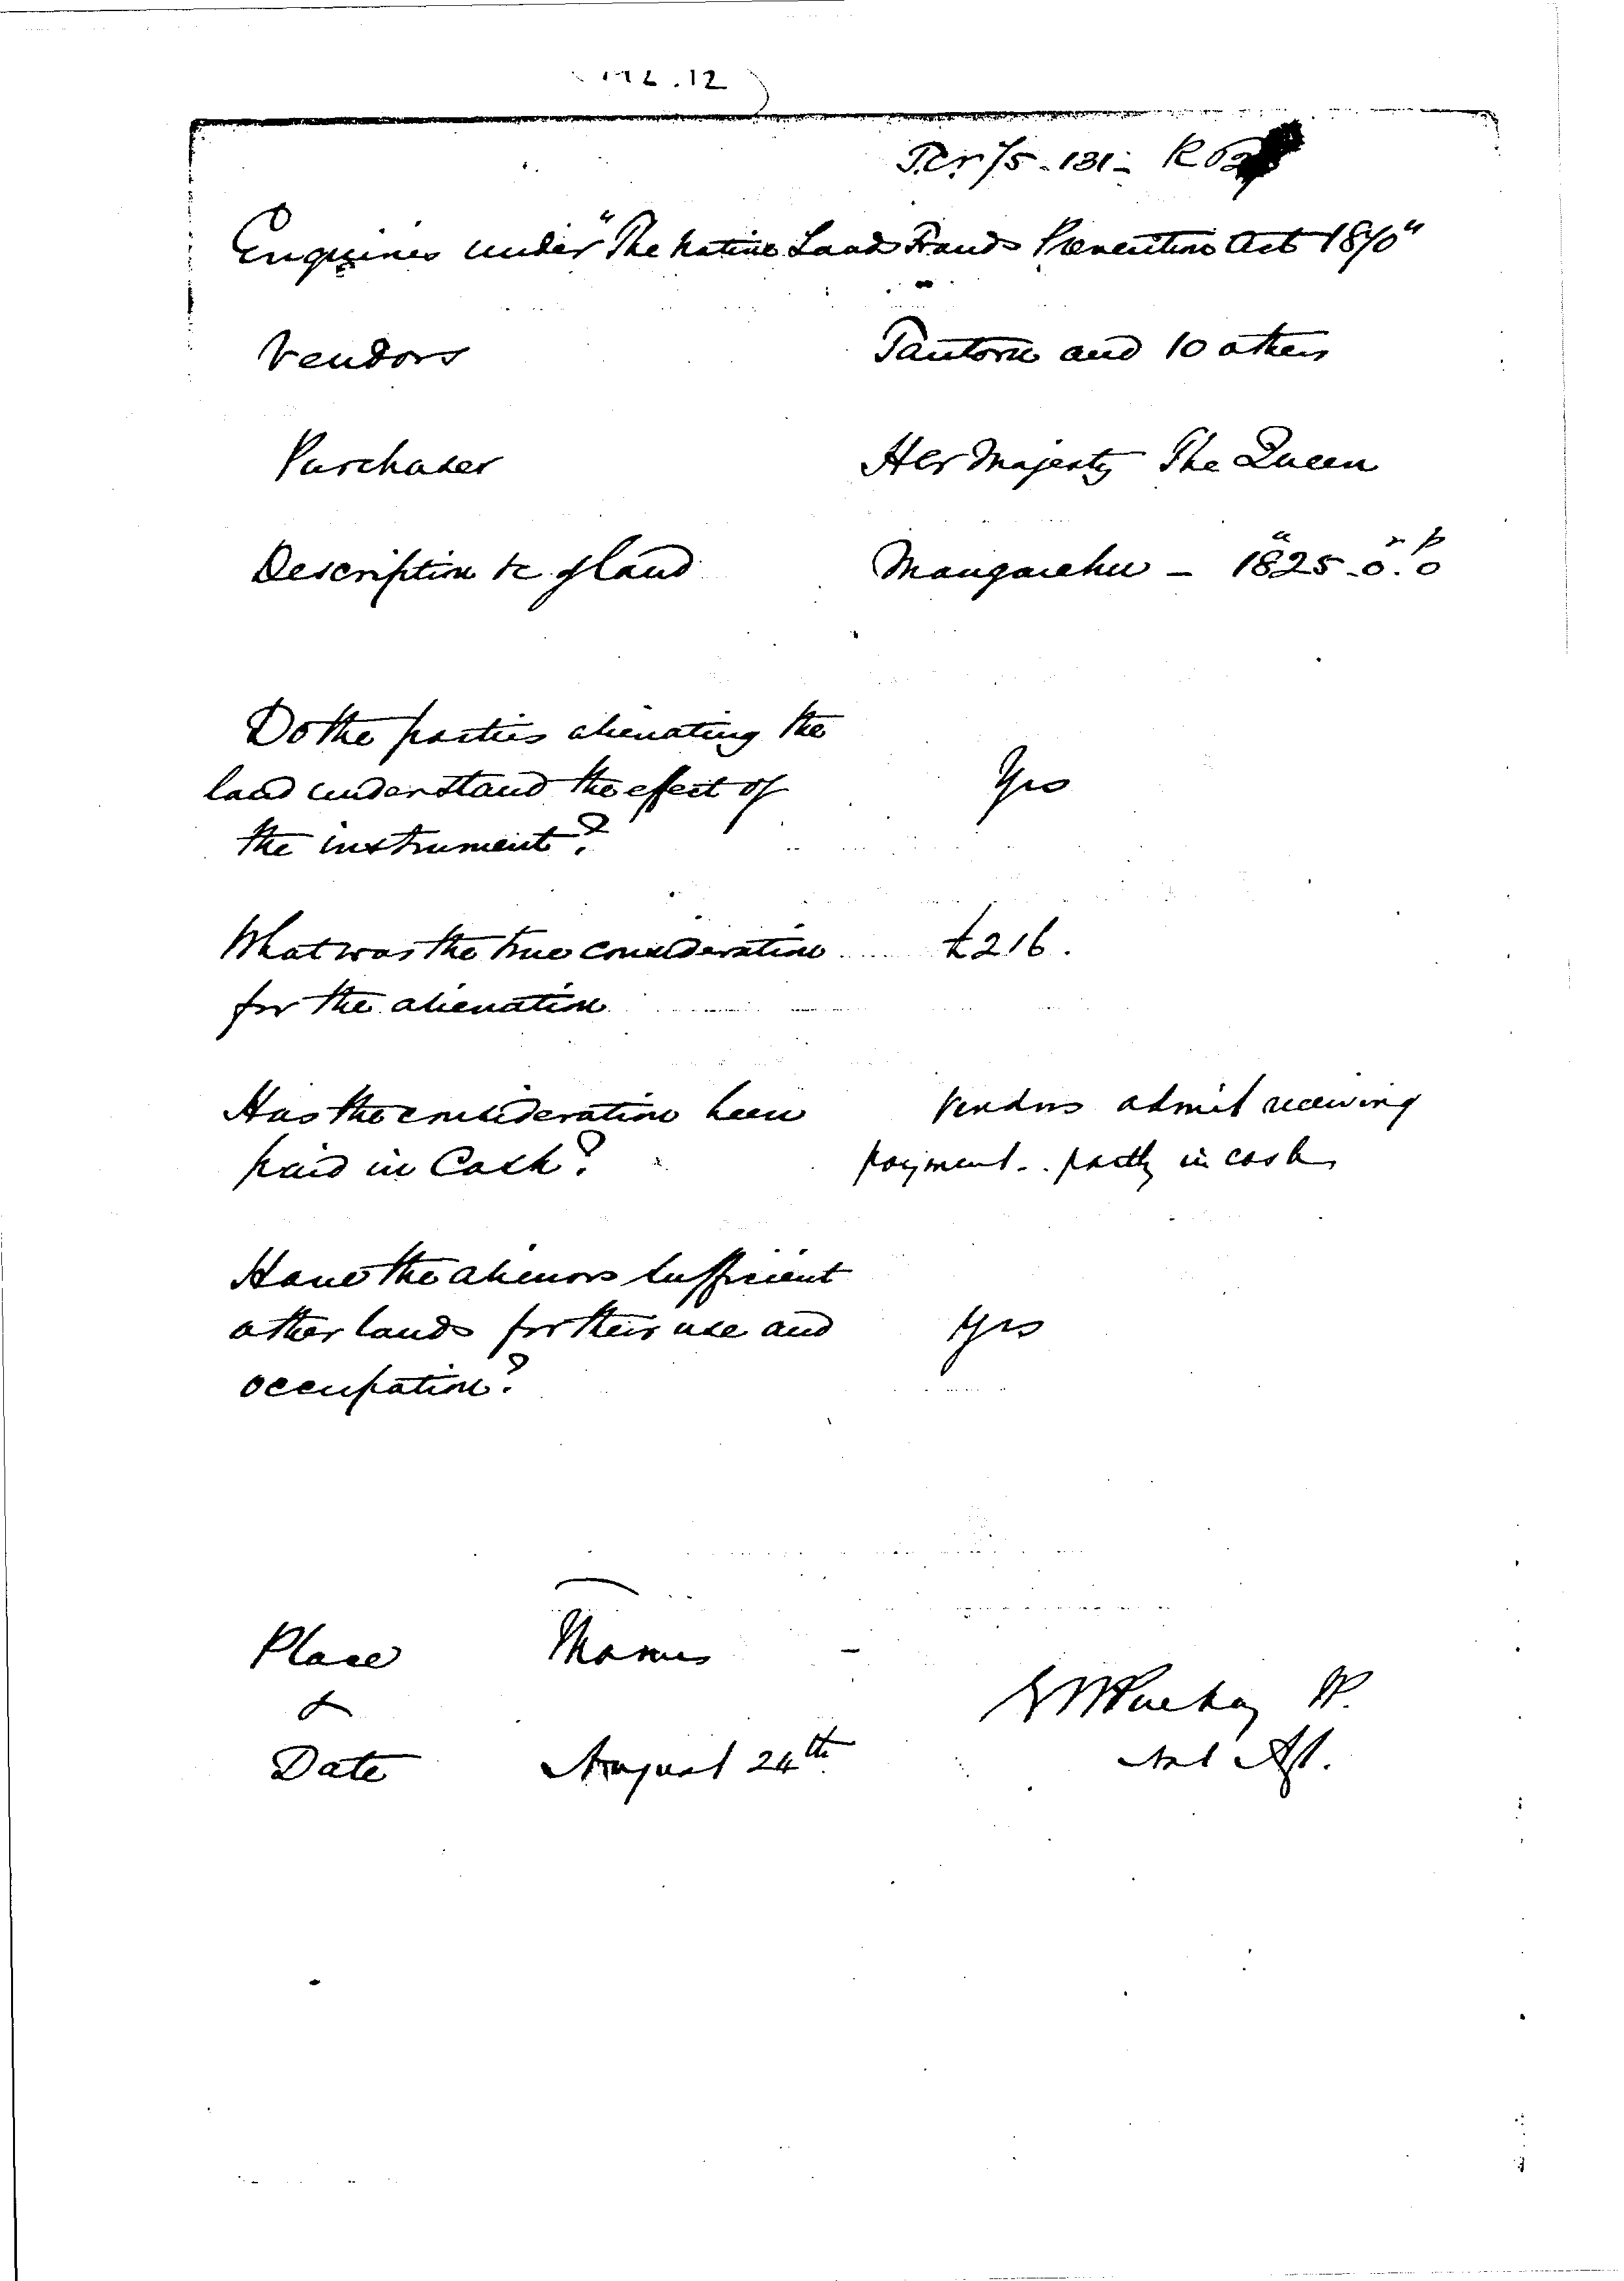 .12
Enquiries under "The Native Lands Frauds Prevention Act 1870"
Vendors and 10 others
Purchaser Her Majesty The Queen
Description &c of Land Mangarehu - 1825 a. 0 r. 0 p
Do the parties alienating the
land understand the effect of Yes
the instrument?
What was the true consideration £216.
for the alienation
Has the consideration been Vendors admit receiving
paid in Cash? payment.. partly in cash
Have the alienors sufficient
other lands for their use and Yes
occupation?
Place Thames
&
Date August 24th